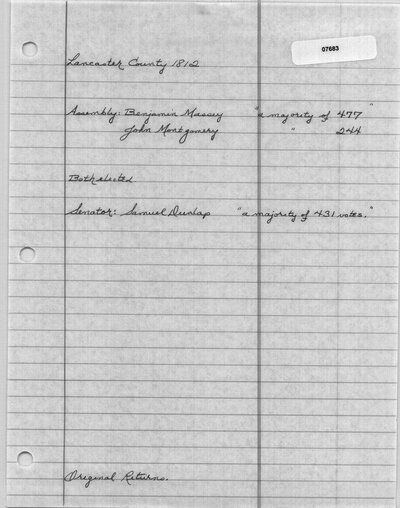 07683
Lancaster County 1812
Assembly: Benjamin Massey "a majority of 477"
John Montgomery " 244
Both elected
Senator: Samuel Dunlap "a majority of 431 votes."
Original Returns.